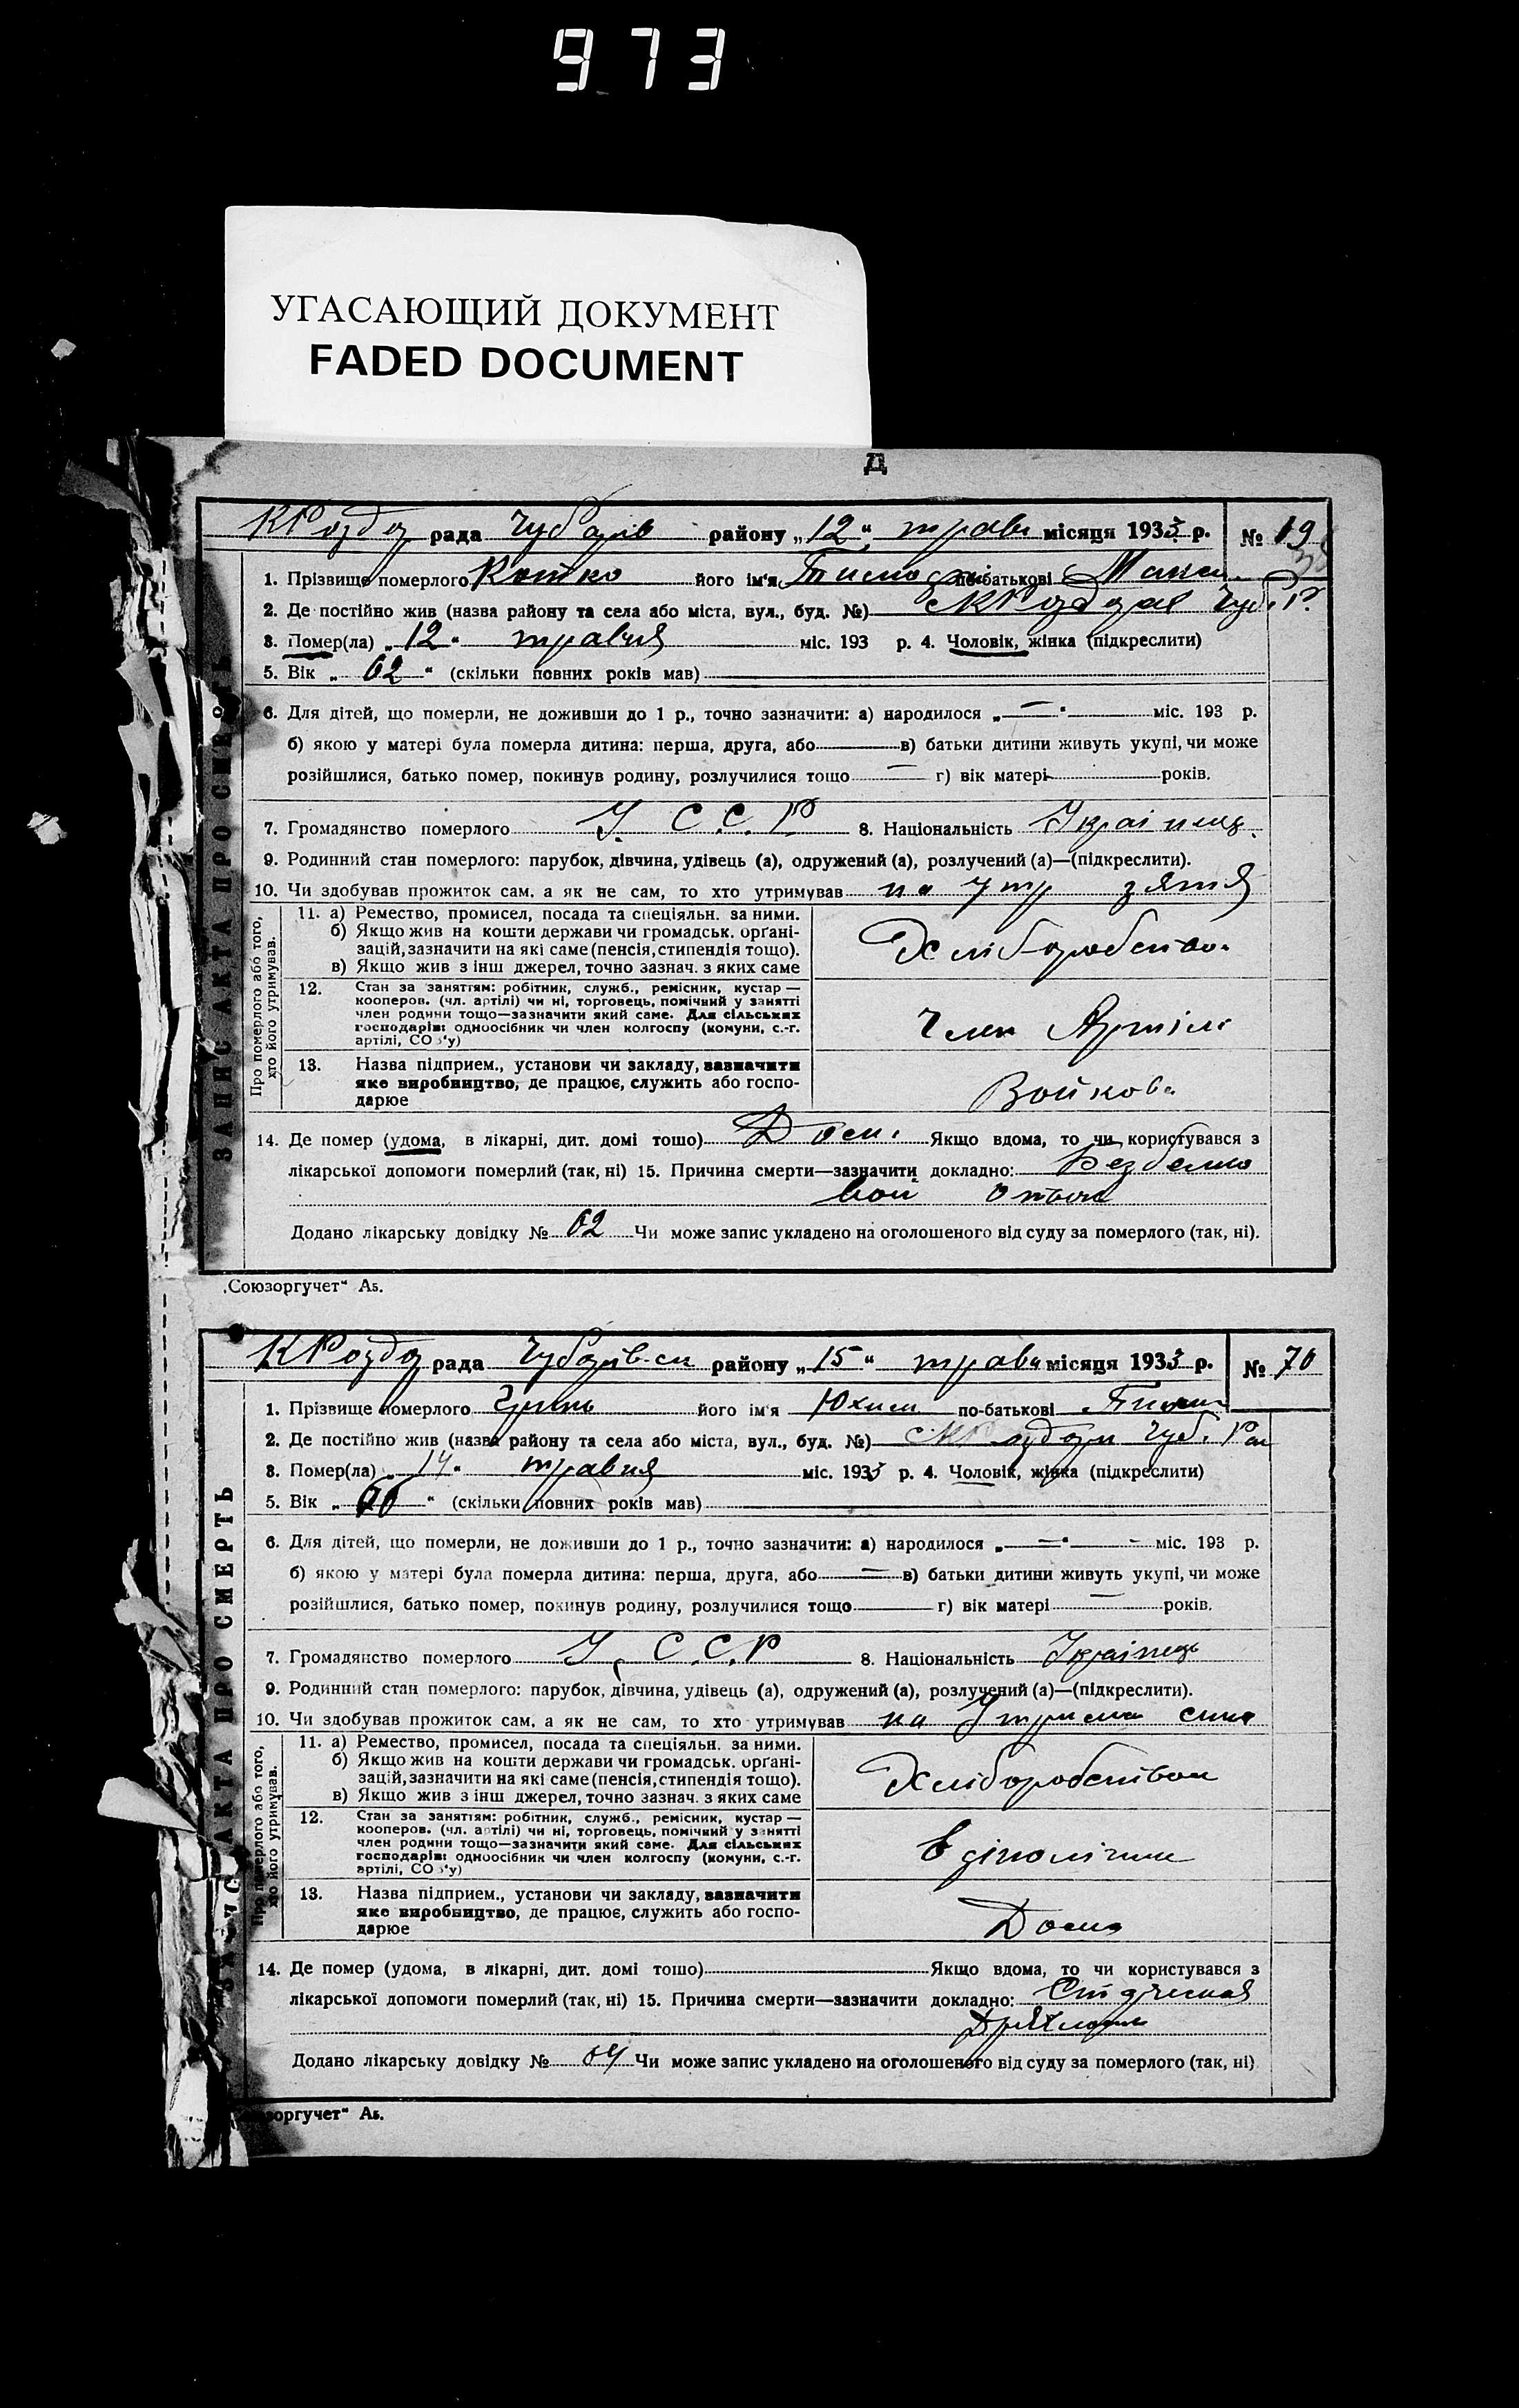 973
УГАСАЮЩИЙ ДОКУМЕНТ
FADED DOCUMENT
Д
рада району „12“ трав місяця 1933 р. № 19
1. Прізвище померлого Котко його ім'я по-батькові
2. Де постійно жив (назва району та села або міста, вул., буд. №)
3. Помер(ла) „12“ травня міс. 193 р. 4. Чоловік, жінка (підкреслити)
5. Вік „62“ (скільки повних років мав)
6. Для дітей, що померли, не доживши до 1 р., точно зазначити: а) народилося „—“ міс. 193 р.
б) якою у матері була померла дитина: перша, друга, або в) батьки дитини живуть укупі, чи може
розійшлися, батько помер, покинув родину, розлучилися тощо — г) вік матері років.
7. Громадянство померлого У. С.С.Р 8. Національність Українець
9. Родинний стан померлого: парубок, дівчина, удівець (а), одружений (а), розлучений (а)—(підкреслити).
10. Чи здобував прожиток сам, а як не сам, то хто утримував на утр зятя
Про померлого або того,
хто його утримував.
11. а) Ремество, промисел, посада та спеціяльн. за ними.
б) Якщо жив на кошти держави чи громадськ. орґані-
зацій, зазначити на які саме (пенсія, стипендія тощо).
в) Якщо жив з інш джерел, точно зазнач. з яких саме
Хліборобство
12. Стан за заняттям: робітник, служб., ремісник, кустар —
кооперов. (чл. артілі) чи ні, торговець, помічний у занятті
член родини тощо—зазначити який саме. Для сільських
господарів: одноосібник чи член колгоспу (комуни, с.-г.
артілі, СО з'у)
Член Артілі
13. Назва підприєм., установи чи закладу, зазначити
яке виробництво, де працює, служить або госпо-
дарює
Войкова
14. Де помер (удома, в лікарні, дит. домі тошо) Дома Якщо вдома, то чи користувався з
лікарської допомоги померлий (так, ні) 15. Причина смерти—зазначити докладно: Безбелко
вой отьок
Додано лікарську довідку № 62 Чи може запис укладено на оголошеного від суду за померлого (так, ні).
ЗАПИС АКТА ПРО СМЕРТЬ
„Союзоргучет“ А5.
рада району „15“ трав місяця 1933 р. № 70
1. Прізвище померлого його ім'я Юхим по-батькові
2. Де постійно жив (назва району та села або міста, вул., буд. №)
3. Помер(ла) „14“ травня міс. 1933 р. 4. Чоловік, жінка (підкреслити)
5. Вік „70“ (скільки повних років мав)
6. Для дітей, що померли, не доживши до 1 р., точно зазначити: а) народилося „—“ - міс. 193 р.
б) якою у матері була померла дитина: перша, друга, або — в) батьки дитини живуть укупі, чи може
розійшлися, батько помер, покинув родину, розлучилися тощо г) вік матері — років.
7. Громадянство померлого У. С.С.Р 8. Національність Українець
9. Родинний стан померлого: парубок, дівчина, удівець (а), одружений (а), розлучений (а)—(підкреслити).
10. Чи здобував прожиток сам, а як не сам, то хто утримував на Утрима сина
Про померлого або того,
хто його утримував.
11. а) Ремество, промисел, посада та спеціяльн. за ними.
б) Якщо жив на кошти держави чи громадськ. орґані-
зацій, зазначити на які саме (пенсія, стипендія тощо).
в) Якщо жив з інш джерел, точно зазнач. з яких саме
Хліборобством
12. Стан за заняттям: робітник, служб., ремісник, кустар —
кооперов. (чл. артілі) чи ні, торговець, помічний у занятті
член родини тощо—зазначити який саме. Для сільських
господарів: одноосібник чи член колгоспу (комуни, с.-г.
артілі, СО з'у)
13. Назва підприєм., установи чи закладу, зазначити
яке виробництво, де працює, служить або госпо-
дарює
Дома
14. Де помер (удома, в лікарні, дит. домі тошо) Якщо вдома, то чи користувався з
лікарської допомоги померлий (так, ні) 15. Причина смерти—зазначити докладно:
Додано лікарську довідку № 64 Чи може запис укладено на оголошеного від суду за померлого (так, ні)
АКТА ПРО СМЕРТЬ
зоргучет“ А5.